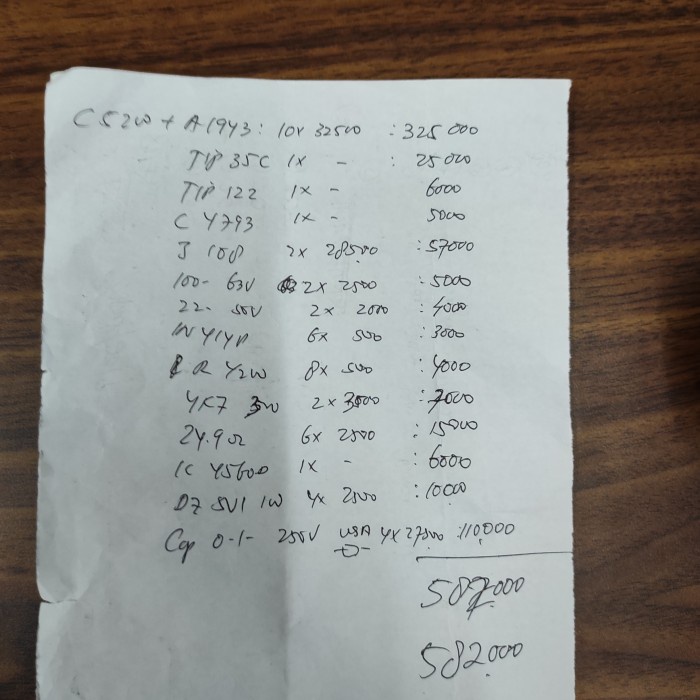 C5200 + A1943 : 10x 32500 : 325 000
TIP 35C 1x - : 25 000
TIP 122 1x - 6000
C 4793 1x - 5000
J 108 2x 28500 : 57000
100- 63V 2x 2500 : 5000
22- 50V 2x 2000 : 4000
IN 4148 6x 500 : 3000
R 1/2W 8x 500 : 4000
4K7 3W 2x 3500 : 7000
24.9Ω 6x 2500 : 15000
IC 4560D 1x - : 6000
DZ 5V1 1W 4x 2500 : 10000
Cap 0-1- 250V USA 4x 27500 : 110,000
587.000
582.000